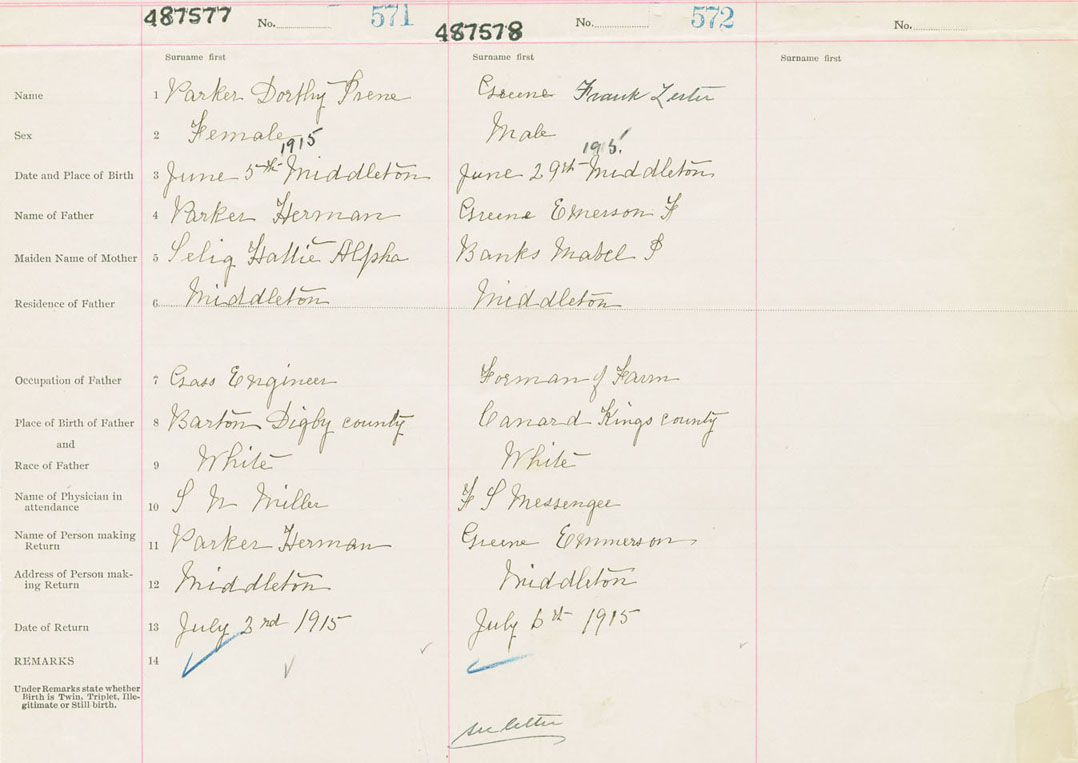 487577 No. 571 487578 No. 572 No.
Surname first Surname first Surname first
Name 1 Parker Dorthy Irene Greene Frank Lester
Sex 2 Female Male
1915 1915
Date and Place of Birth 3 June 5th Middleton June 29th Middleton
Name of Father 4 Parker Herman Greene Emerson F
Maiden Name of Mother 5 Selig Hattie Alpha Banks Mabel I
Residence of Father 6 Middleton Middleton
Occupation of Father 7 Gass Engineer Forman of Farm
Place of Birth of Father 8 Barton Digby county Canard Kings county
and
Race of Father 9 White White
Name of Physician in
attendance 10 S N Miller F S Messenger
Name of Person making
Return 11 Parker Herman Greene Emmerson
Address of Person mak-
ing Return 12 Middleton Middleton
Date of Return 13 July 3rd 1915 July 6th 1915
REMARKS 14
Under Remarks state whether
Birth is Twin, Triplet, Ille-
gitimate or Still-birth.
see letter